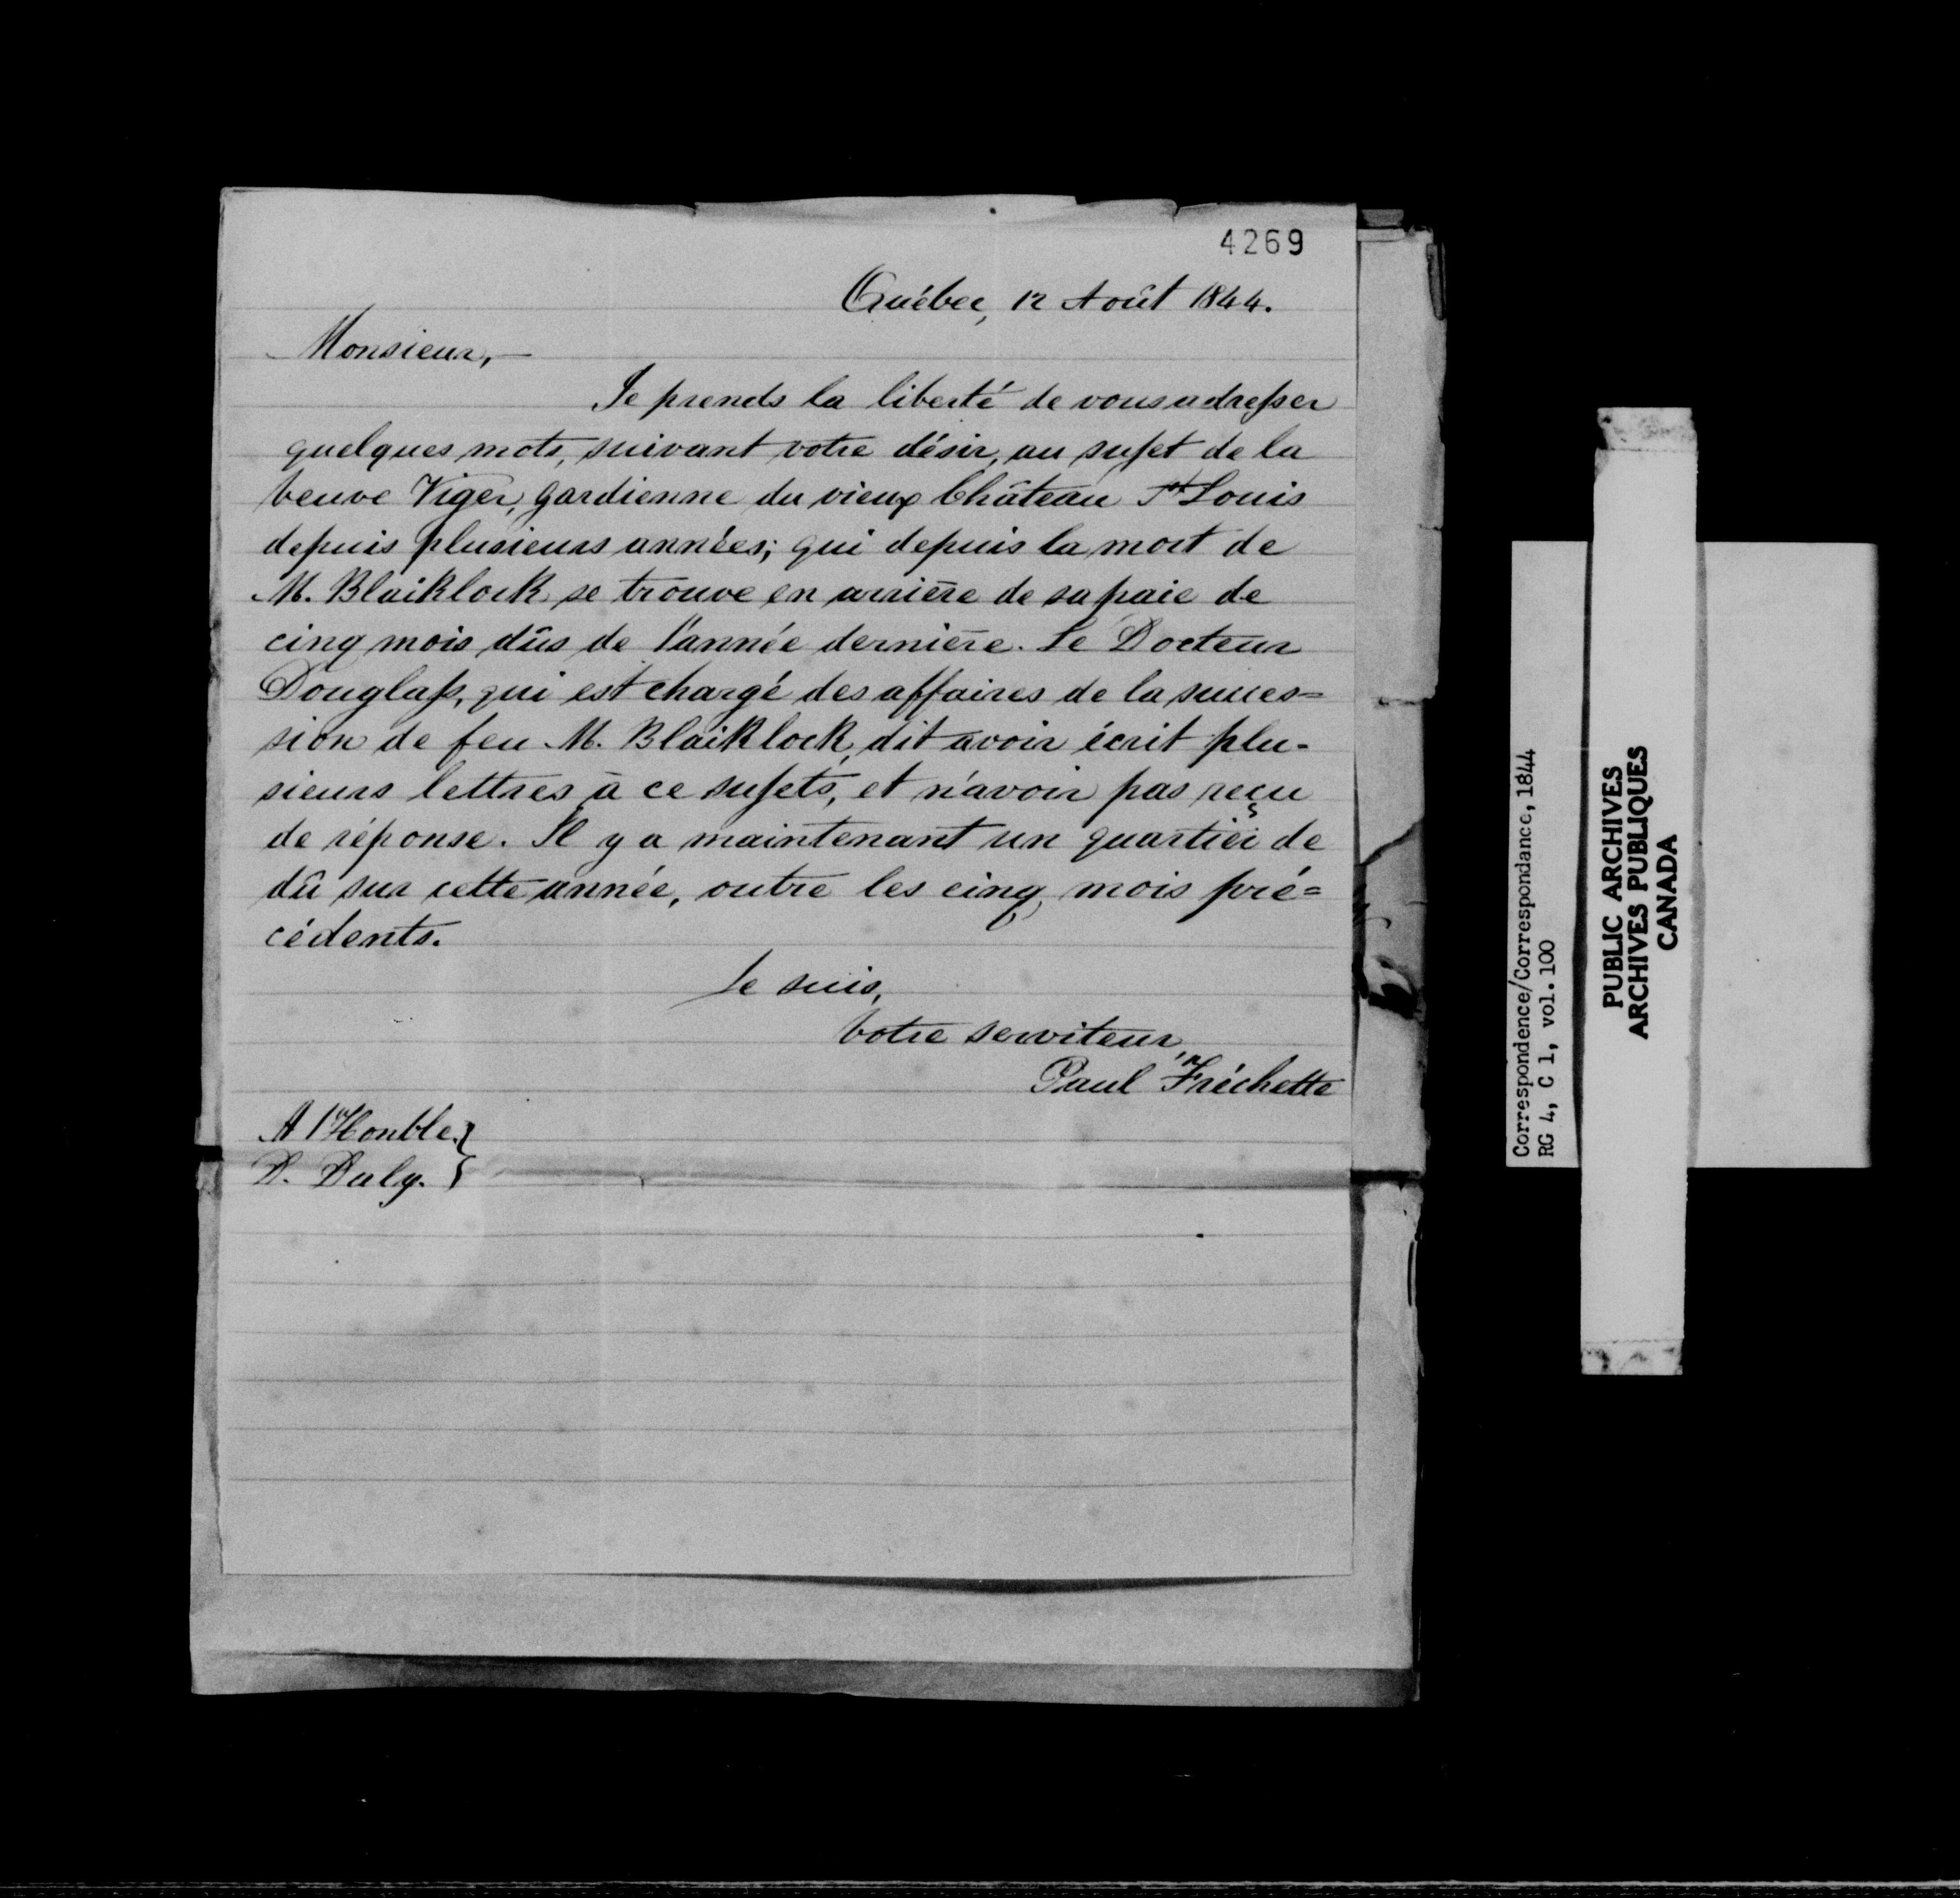 4269
Québec, 12 Août 1844.
Monsieur,—
Je prends la liberté de vous adresser
quelques mots, suivant votre désir, au sujet de la
veuve Viger, gardienne du vieux Château St Louis
depuis plusieurs années; qui depuis la mort de
M. Blaiklock se trouve en arrière de sa paie de
cinq mois dûs de l'année dernière. Le Docteur
Douglass, qui est chargé des affaires de la succes=
sion de feu M. Blaiklock, dit avoir écrit plu-
sieurs lettres à ce sujets, et n'avoir pas reçu
de réponse. Il y a maintenant un quartier de
dû sur cette année, outre les cinq mois pré=
cédents.
Je suis,
Votre serviteur,
Paul Fréchette
A l'Honble.}
D. Daly.}
Correspondence/Correspondance, 1844
RG 4, C 1, vol. 100
PUBLIC ARCHIVES
ARCHIVES PUBLIQUES
CANADA